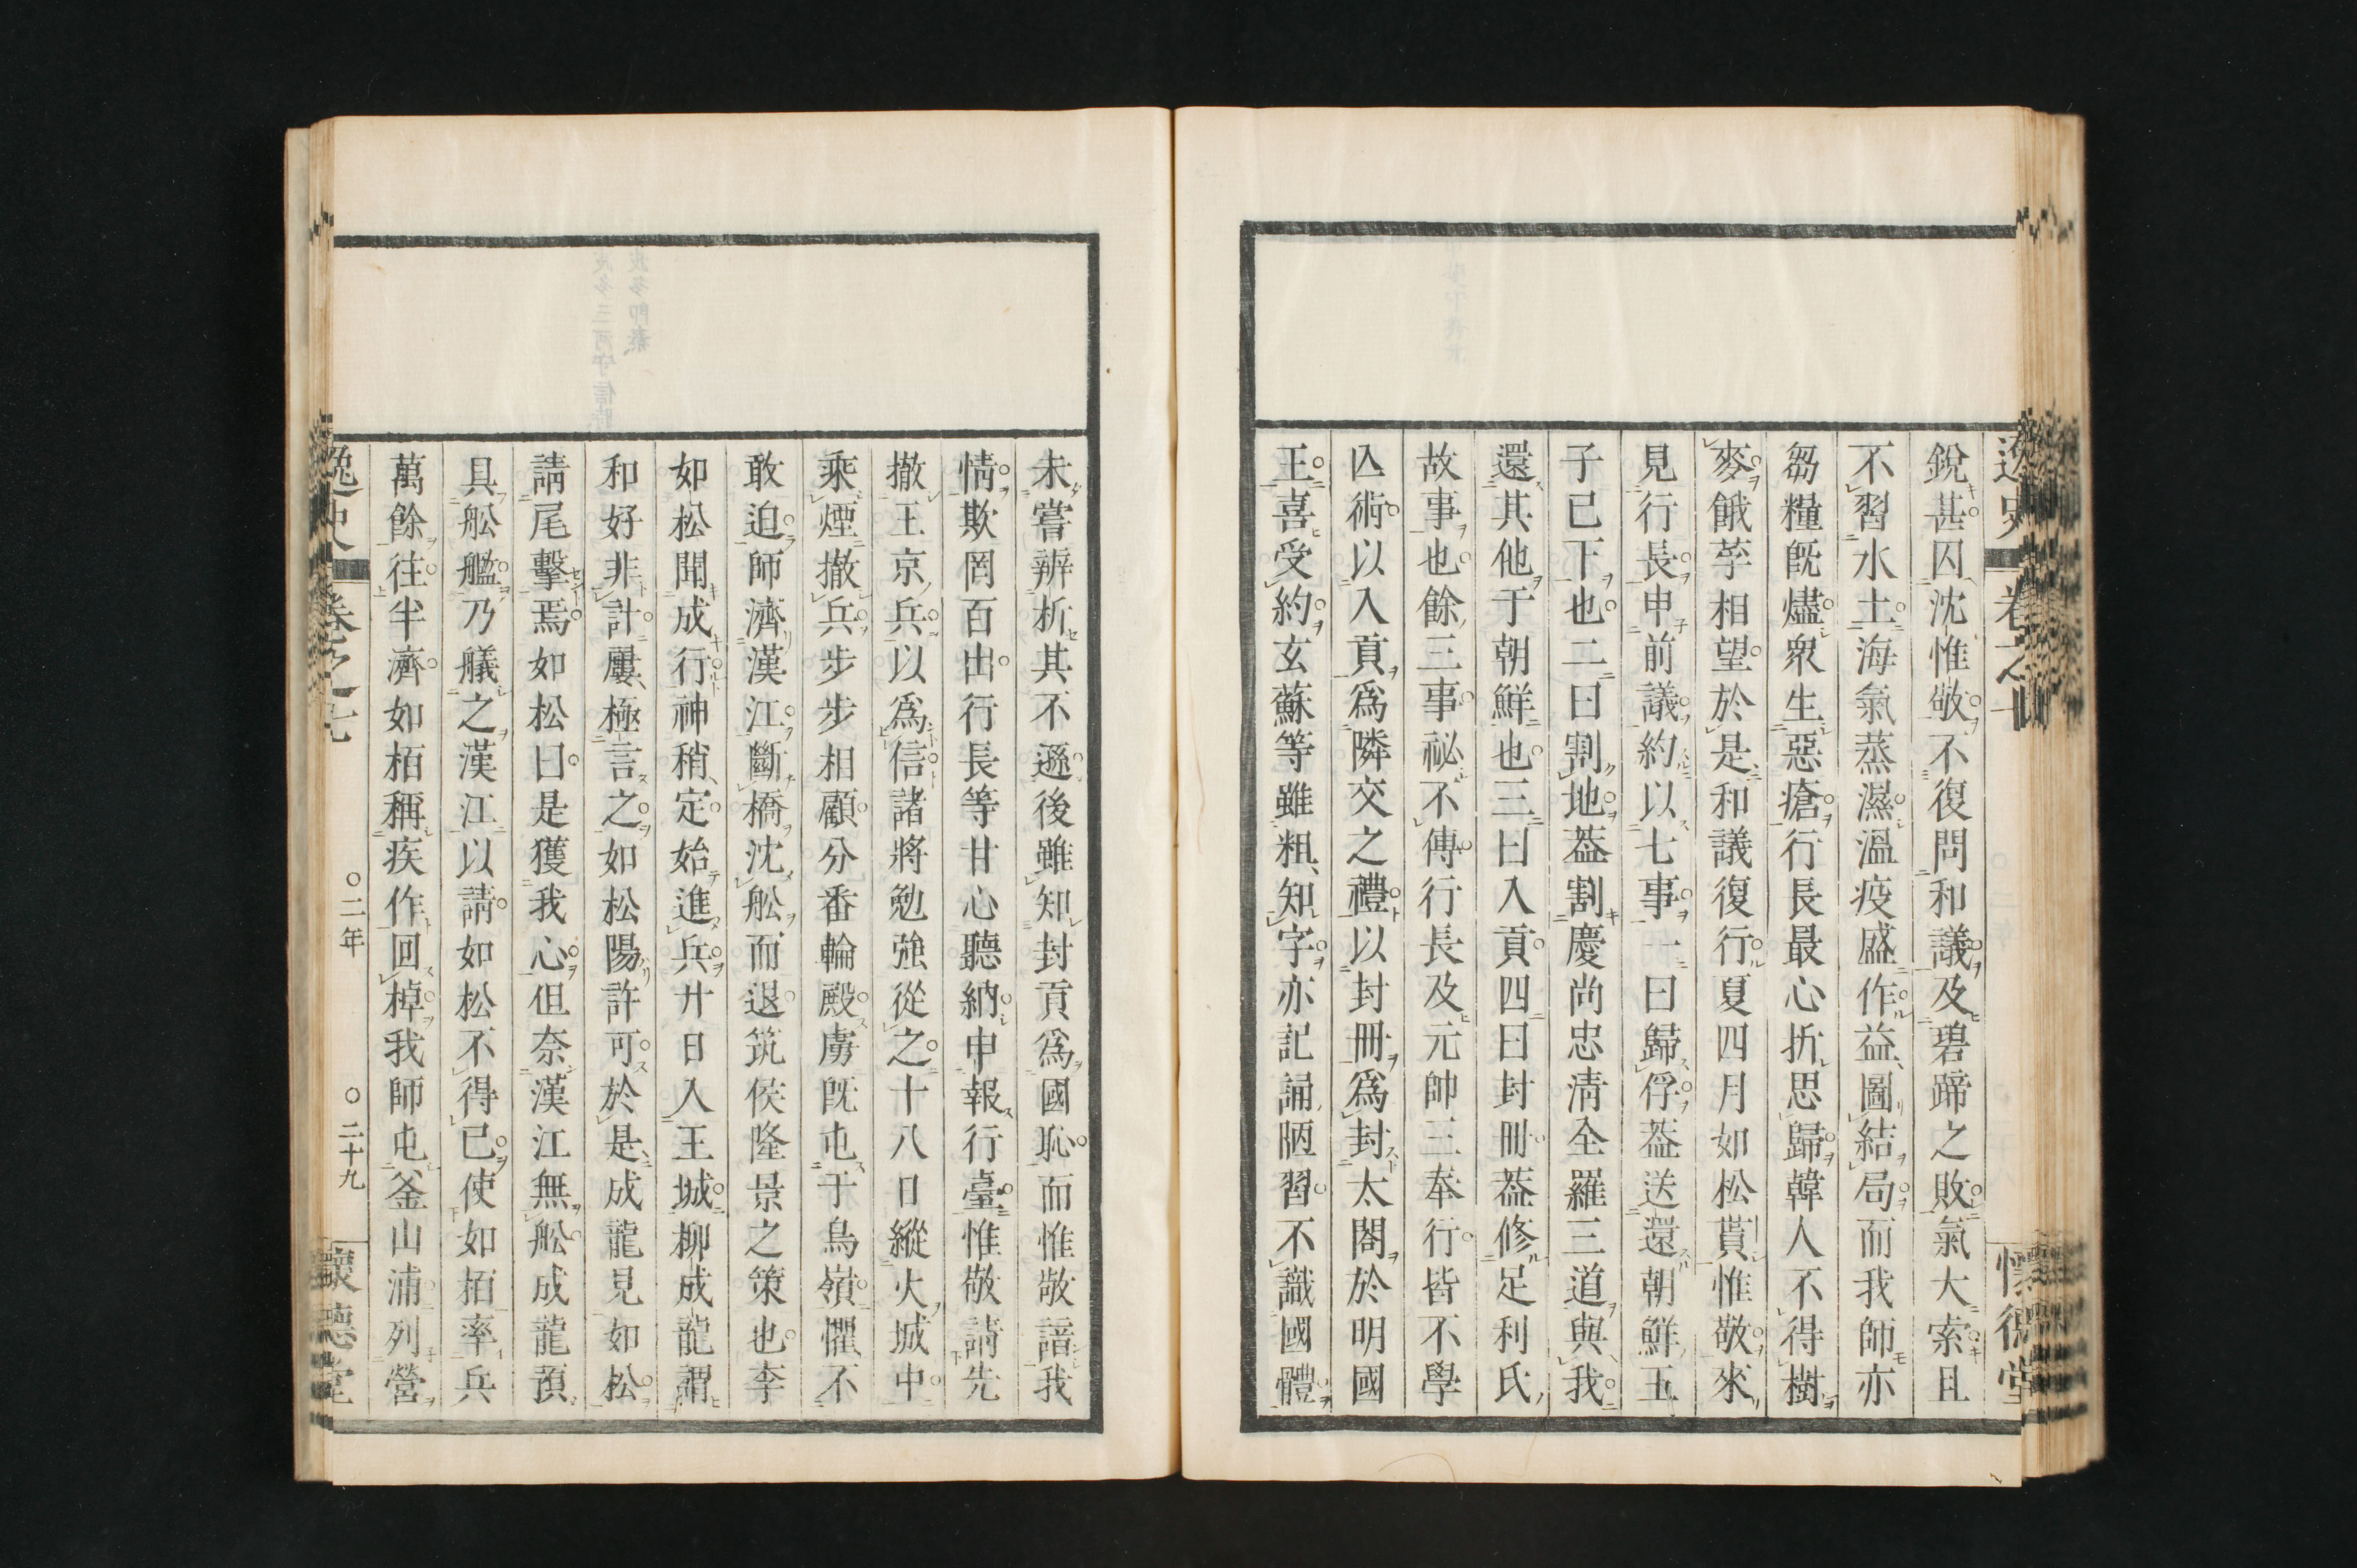 銳甚囚沈惟敬不復問和議及碧蹄之敗氣大索且
不習水土海氣蒸濕溫疫盛作益圖結局而我師亦
芻糧既燼衆生惡瘡行長最心折思歸韓人不得樹
麥餓莩相望於是和議復行夏四月如松貰惟敬來
見行長申前議約以七事一曰歸俘葢送還朝鮮王
子已下也二曰割地葢割慶尚忠清全羅三道與我
還其他于朝鮮也三曰入貢四曰封冊葢修足利氏
故事也餘三事祕不傳行長及元帥三奉行皆不學
亾術以入貢爲隣交之禮以封冊爲封太閤於明國
王喜受約玄蘇等雖粗知字亦記誦陋習不識國體
未嘗辨析其不遜後雖知封貢爲國恥而惟敬諳我
情欺罔百出行長等甘心聽納申報行臺惟敬請先
撤王京兵以爲信諸將勉強從之十八日縱火城中
乘煙撤兵步步相顧分番輪殿虜既屯于鳥嶺懼不
敢迫師濟漢江斷橋沈舩而退筑侯隆景之策也李
如松聞成行神稍定始進兵廿日入王城柳成龍謂
和好非計屢極言之如松陽許可於是成龍見如松
請尾擊焉如松曰是獲我心但奈漢江無舩成龍預
具舩艦乃艤之漢江以請如松不得已使如栢率兵
萬餘往半濟如栢稱疾作回棹我師屯釜山浦列營
逸史 卷之七 〇二年 〇二十九 懷德堂